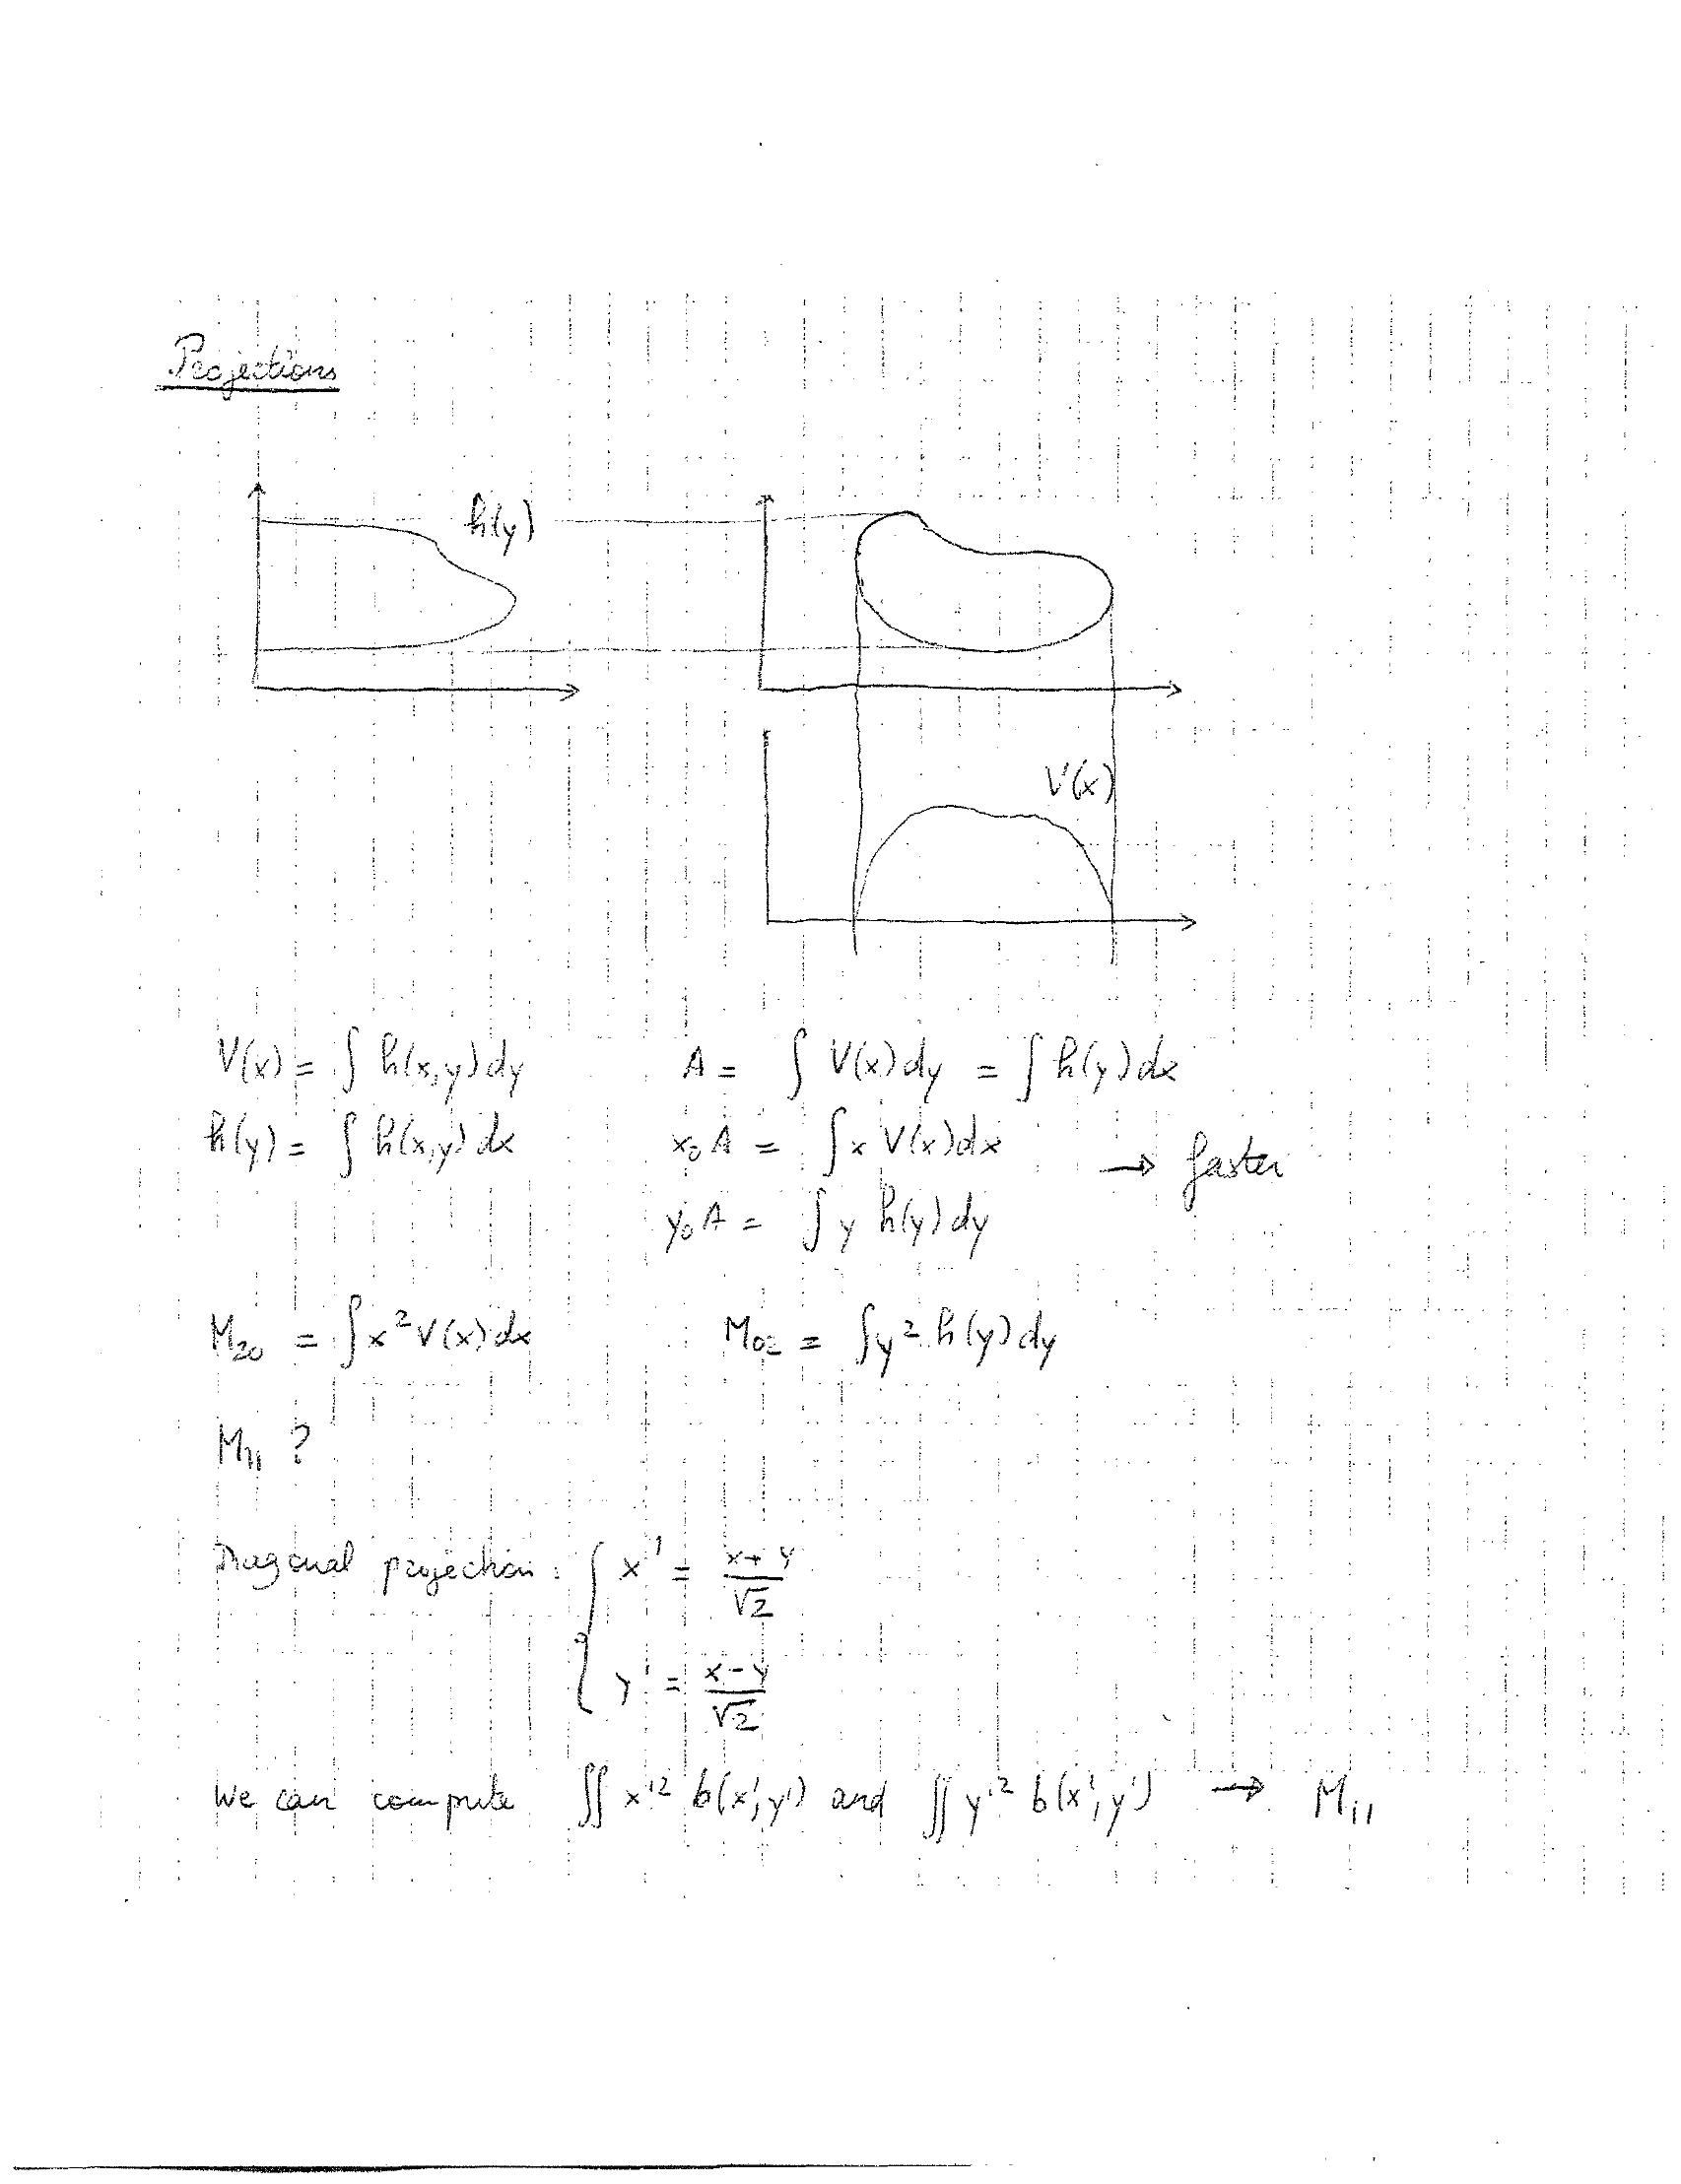 Projections
h(y)
V(x)
V(x) = ∫ h(x,y) dy    A = ∫ V(x) dy = ∫ h(y) dx
h(y) = ∫ h(x,y) dx    x₀ A = ∫ x V(x) dx → faster
y₀ A = ∫ y h(y) dy
M₂₀ = ∫ x² V(x) dx    M₀₂ = ∫ y² h(y) dy
M₁₁ ?
Diagonal projection : { x' = (x + y)/√2
y' = (x - y)/√2
We can compute ∬ x'² b(x', y') and ∬ y'² b(x', y') → M₁₁